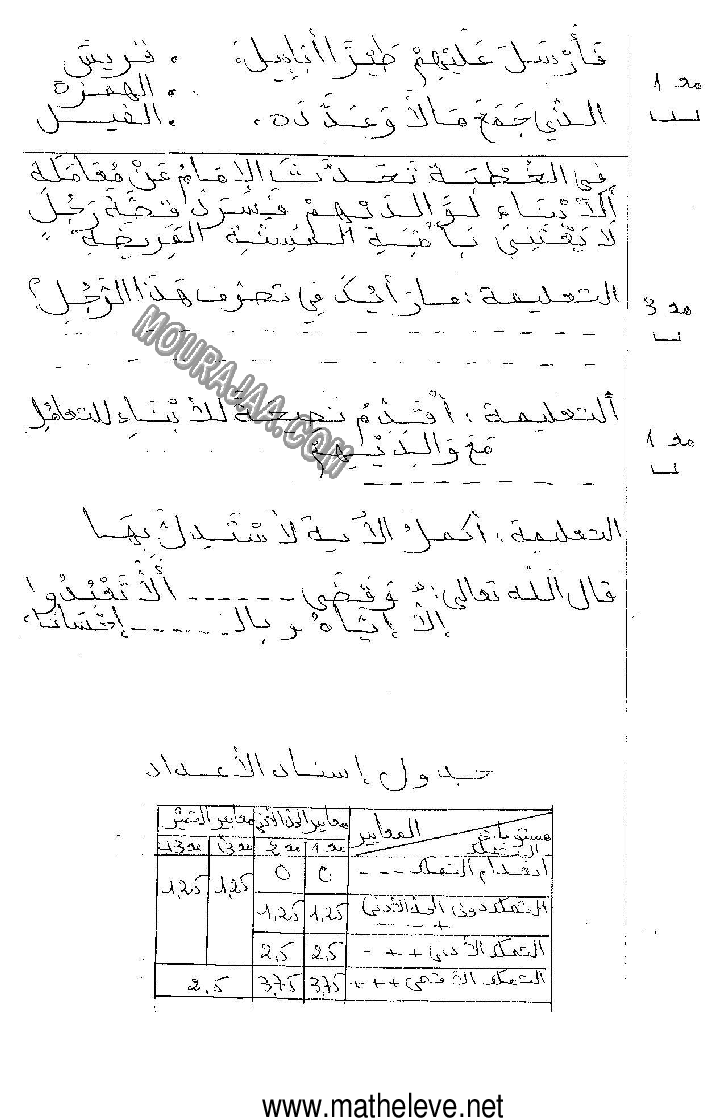 فَأَرْسَلَ عَلَيْهِمْ طَيْرًا أَبَابِيلَ . قريش
. الهمزة
الذِي جَمَعَ مَالاً وَعَدَّدَهُ . الفيل
مع 1
في الخُطْبَة تَحَدَّثَ الإمَامُ عَنْ مُعَامَلَةِ
الأَبْنَاءِ لِوَالِدَيْهِمْ فَسَرَدَ قِصَّةَ رَجُلٍ
لاَ يَعْتَنِي بِأُمِّهِ المُسِنَّةِ المَرِيضَةِ
التعليمة : ما رأيك في تصرف هَذَا الرَّجُلِ؟
مع 3
التعليمة : أُقَدِّمُ نَصِيحَةً لِلأَبْنَاءِ للتعامُلِ
مَعَ وَالِدَيْهِمْ
مع 1
التعليمة : أكمل الآية لأسْتَدِلَّ بِهَا
قال اللّه تعالى: " وَقَضَى ------ أَلاَّ تَعْبُدُوا
إِلاَّ إِيَّاهُ وبالـ ------ إِحْسَانًا "
جدول إسناد الأعداد
مستويات التملك المعايير معايير الحد الأدنى معايير التميز
مع 1 مع 2 مع 3 مع 3
انعدام التملك --- 0 0 1,25 1,25
التملك دون الأدنى + -- 1,25 1,25
التملك الأدنى ++ - 2,5 2,5
التملك الأقصى +++ 3,75 3,75 2,5
MOURAJAA.COM
www.matheleve.net